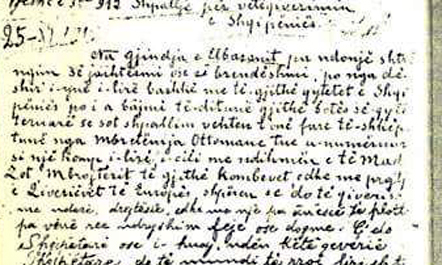 912 Shpallje për vetëqeverimin
e Shqipëniës.
25-
Na gjindja e Elbasanit pa ndonjë shtër
ngim së jashtësmi ose së brendëshmi, po nga dë-
shir' i-ynë i-lirë bashkë me të-gjithë qytetet e Shqi
pëniës po i a bâjmë të-ditunë gjithë botës së-qytë-
teruarë se sot shpallim vehten t'onë fare të-shkëp-
tunë nga Mbretënija Ottomane tue u-numëruar
si një komp i-lirë, i-cili me ndihmën e të Madhit
Zot Mbrojtësit të gjithë kombevet edhe me
e Qiverivet të Europës shpëren se do të qiveriset
me nderë, drejtësië, edhe me një barasië të plotë
pa vënë re ndryshim feje ose dogme. Ç'do
Shqipëtarë ose i-huaj, nden këtë qeverië
Shqipëtare do të mundi të rroj